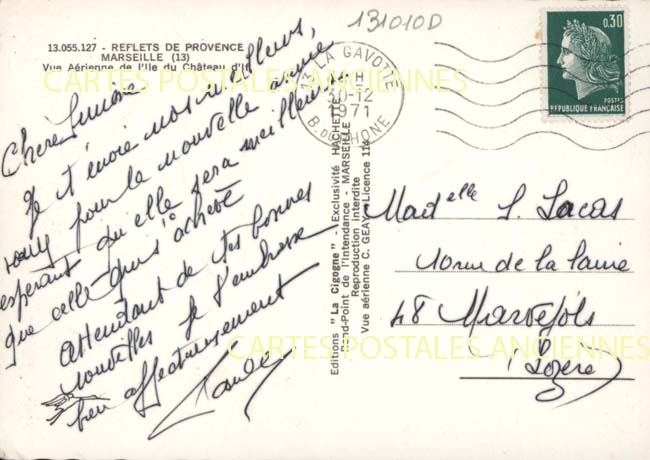 131010D
13.055.127 - REFLETS DE PROVENCE
MARSEILLE (13)
Vue Aérienne de l'Ile du Château d'If
CARTES POSTALES ANCIENNES
Chère Simone
Je t'envoie mes meilleurs,
vœux pour la nouvelle année
espérant qu'elle sera meilleure
que celle qui s'achève
attendant de tes bonnes
nouvelles Je t'embrasse
bien affectueusement
Editions "La Cigogne" - Exclusivité HACHETTE
Rond-Point de l'Intendance - MARSEILLE
Reproduction interdite
Vue aérienne C. GEAY - Licence 114
13 LA GAVOTTE
H
-12
1971
B. DU RHONE
0,30
POSTES
REPUBLIQUE FRANÇAISE
Mad elle S. Lacas
10 rue de la
48 Marvejols
Lozère
CARTES POSTALES ANCIENNES